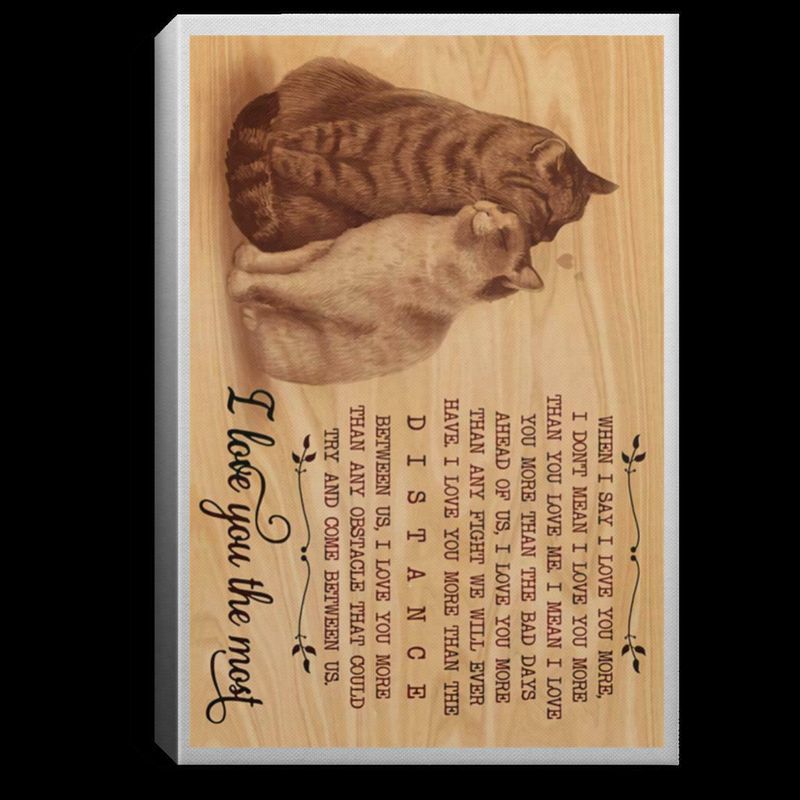 WHEN I SAY I LOVE YOU MORE,
I DON'T MEAN I LOVE YOU MORE
THAN YOU LOVE ME. I MEAN I LOVE
YOU MORE THAN THE BAD DAYS
AHEAD OF US, I LOVE YOU MORE
THAN ANY FIGHT WE WILL EVER
HAVE. I LOVE YOU MORE THAN THE
DISTANCE
BETWEEN US, I LOVE YOU MORE
THAN ANY OBSTACLE THAT COULD
TRY AND COME BETWEEN US.
I love you the most